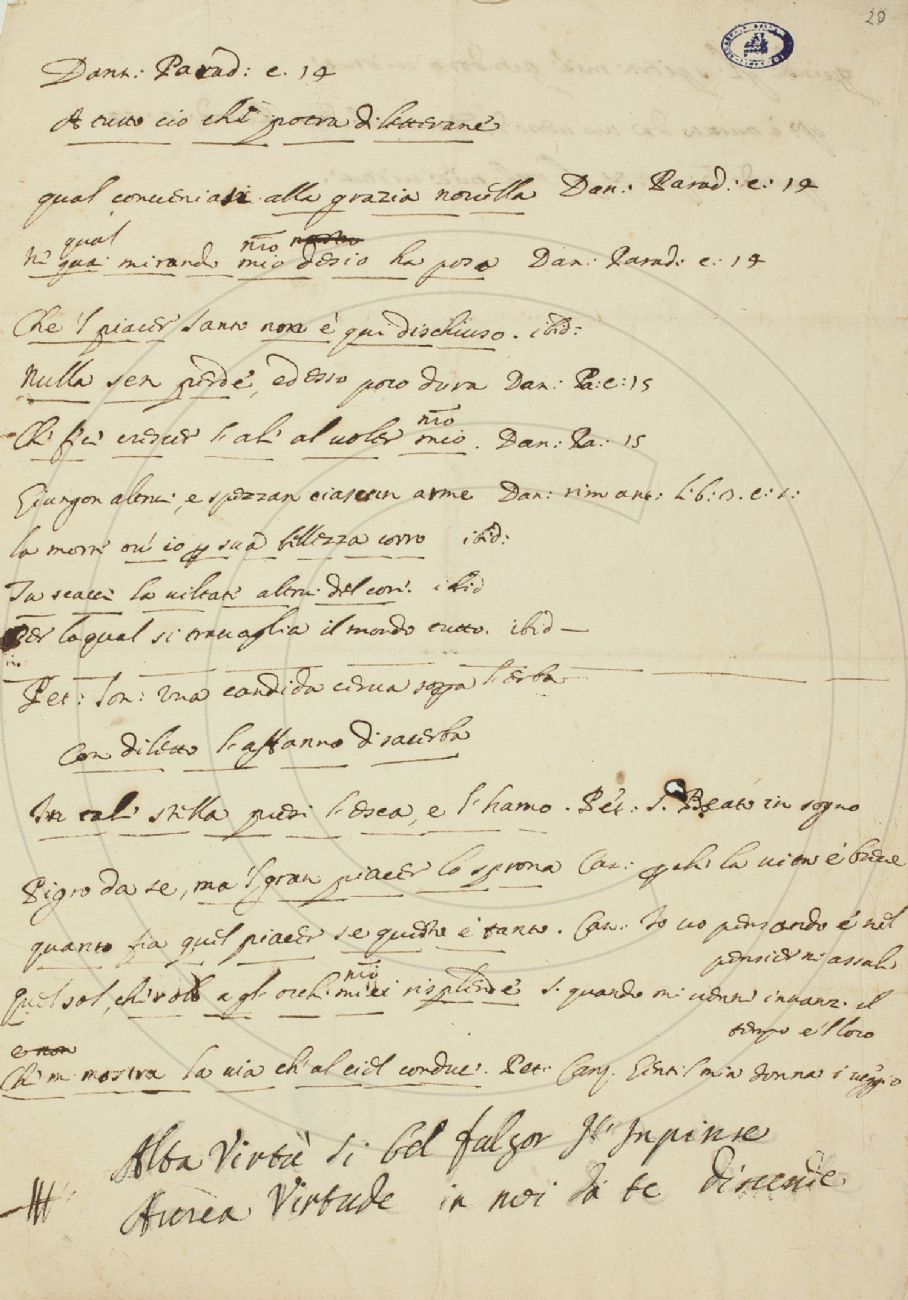 20
Dant: Parad: c. 14
A tutto ciò che potrà dilettarne
qual conveniasi alla grazia novella Dan: Parad: c: 14
qual nío nostro
Nè qua: mirando mio desio ha posa Dan: Parad: c: 14
Che 'l piacer santo non è qui dischiuso. ibid:
Nulla sen perde, ed esso poco dura Dan: Pa: c: 15
nío
Che fei crescer l'ali al voler mio. Dan: Pa: 15
Giungon altrui, e spezzan ciascun arme Dan: rim ant: lib. 3. c. 1:
la morte ov' io ꝑ sua bellezza corro ibid:
Tu scacci la viltate altrui del core. ibid
Per la qual si travaglia il mondo tutto. ibid —
Pet: son: Una candida cerva sopra l'erba
Con diletto l'affanno disacerba
In tale stella presi l'esca, e l'hamo. Pet: s. Beato in sogno
Pigro da se, ma 'l gran piacer lo sprona Can: ꝑche la vita è breve
quanto fia quel piacer se questo è tanto. Can: Io vo pensando é nel
pensier m' assale
nío
quel sol, che solo agl' occhi miei risplende s. quando mi vene innanzi il
tempo e 'l loco
e non
Che mi mostra la via ch' al ciel conduce. Pet: Canz. Gentil mia donna i veggio
Alta Virtù si bel fulgor
Aurea Virtude in noi da te discende